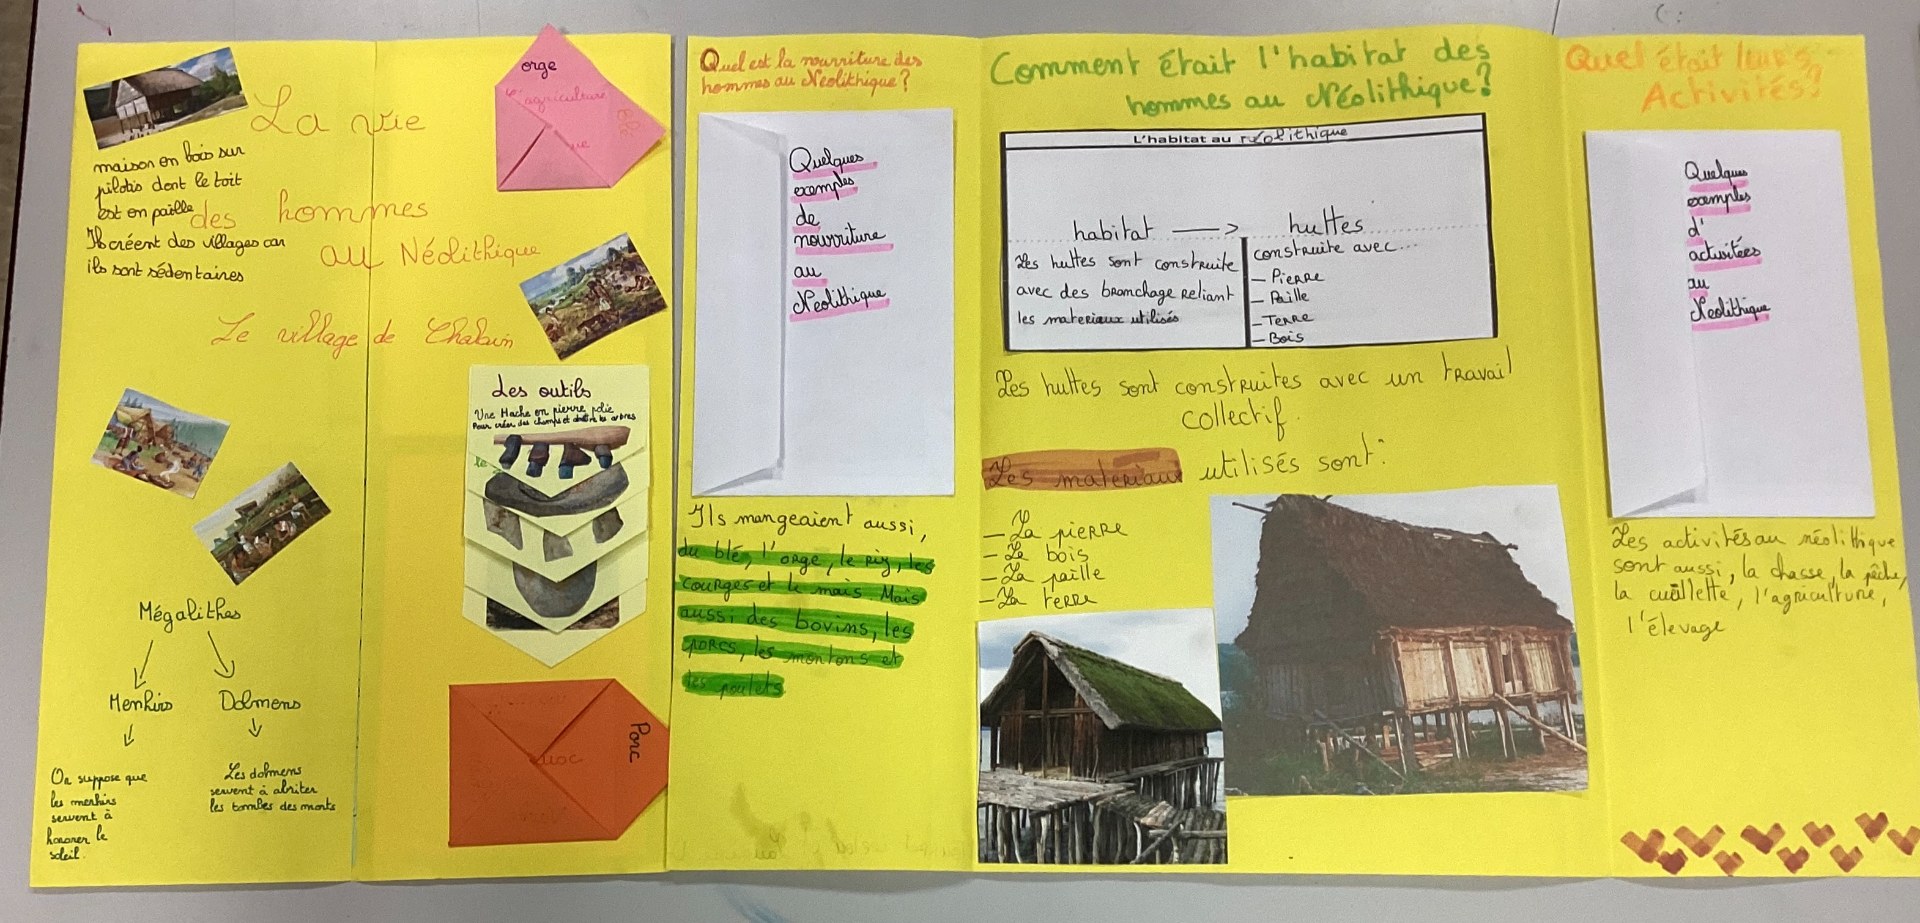 La vie
des hommes
au Néolithique
Le village de Chalain
maison en bois sur
pilotis dont le toit
est en paille
Ils créent des villages car
ils sont sédentaires
Mégalithes
Menhirs
Dolmens
On suppose que
les menhirs
servent à
honorer le
soleil.
Les dolmens
servent à abriter
les tombes des morts
orge
agriculture
Blé
Les outils
Une Hache en pierre polie
Pour créer des champs et abattre les arbres
le
Porc
Quel est la nourriture des
hommes au Néolithique?
Quelques
exemples
de
nourriture
au
Neolithique
Ils mangeaient aussi,
du blé, l'orge, le riz, les
courges et le maïs. Mais
aussi des bovins, les
porcs, les moutons et
les poulets
Comment était l'habitat des
hommes au Néolithique?
L'habitat au néolithique
habitat → huttes
Les huttes sont construite
avec des branchage reliant
les materiaux utilisés
construite avec...
- Pierre
- Paille
- Terre
- Bois
Les huttes sont construites avec un travail
collectif.
Les materiaux utilisés sont:
- La pierre
- Le bois
- La paille
- La terre
Quel était leurs
Activités?
Quelques
exemples
d'
activitées
au
Neolithique
Les activités au néolithique
sont aussi, la chasse, la pêche,
la cueillette, l'agriculture,
l'élevage